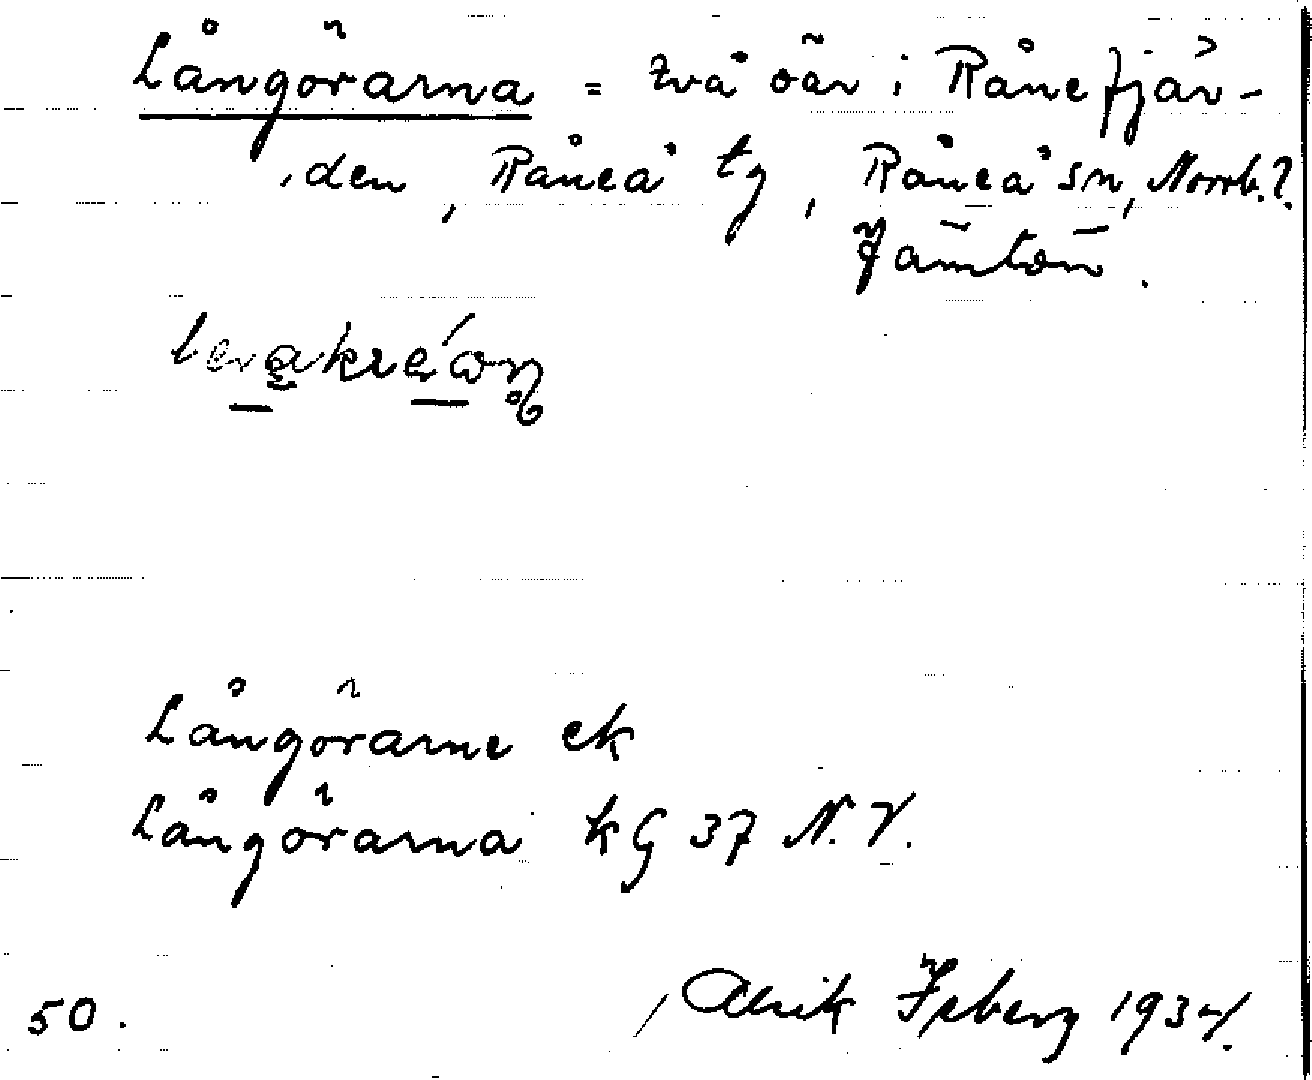 Långörarna = två öar i Rånefjär-
den, Råneå tg, Råneå sn, Norrb. l.
Jämtön.
Långörarne ek
Långörarna kG 37 N.V.
50. Alrik Isberg 1934.